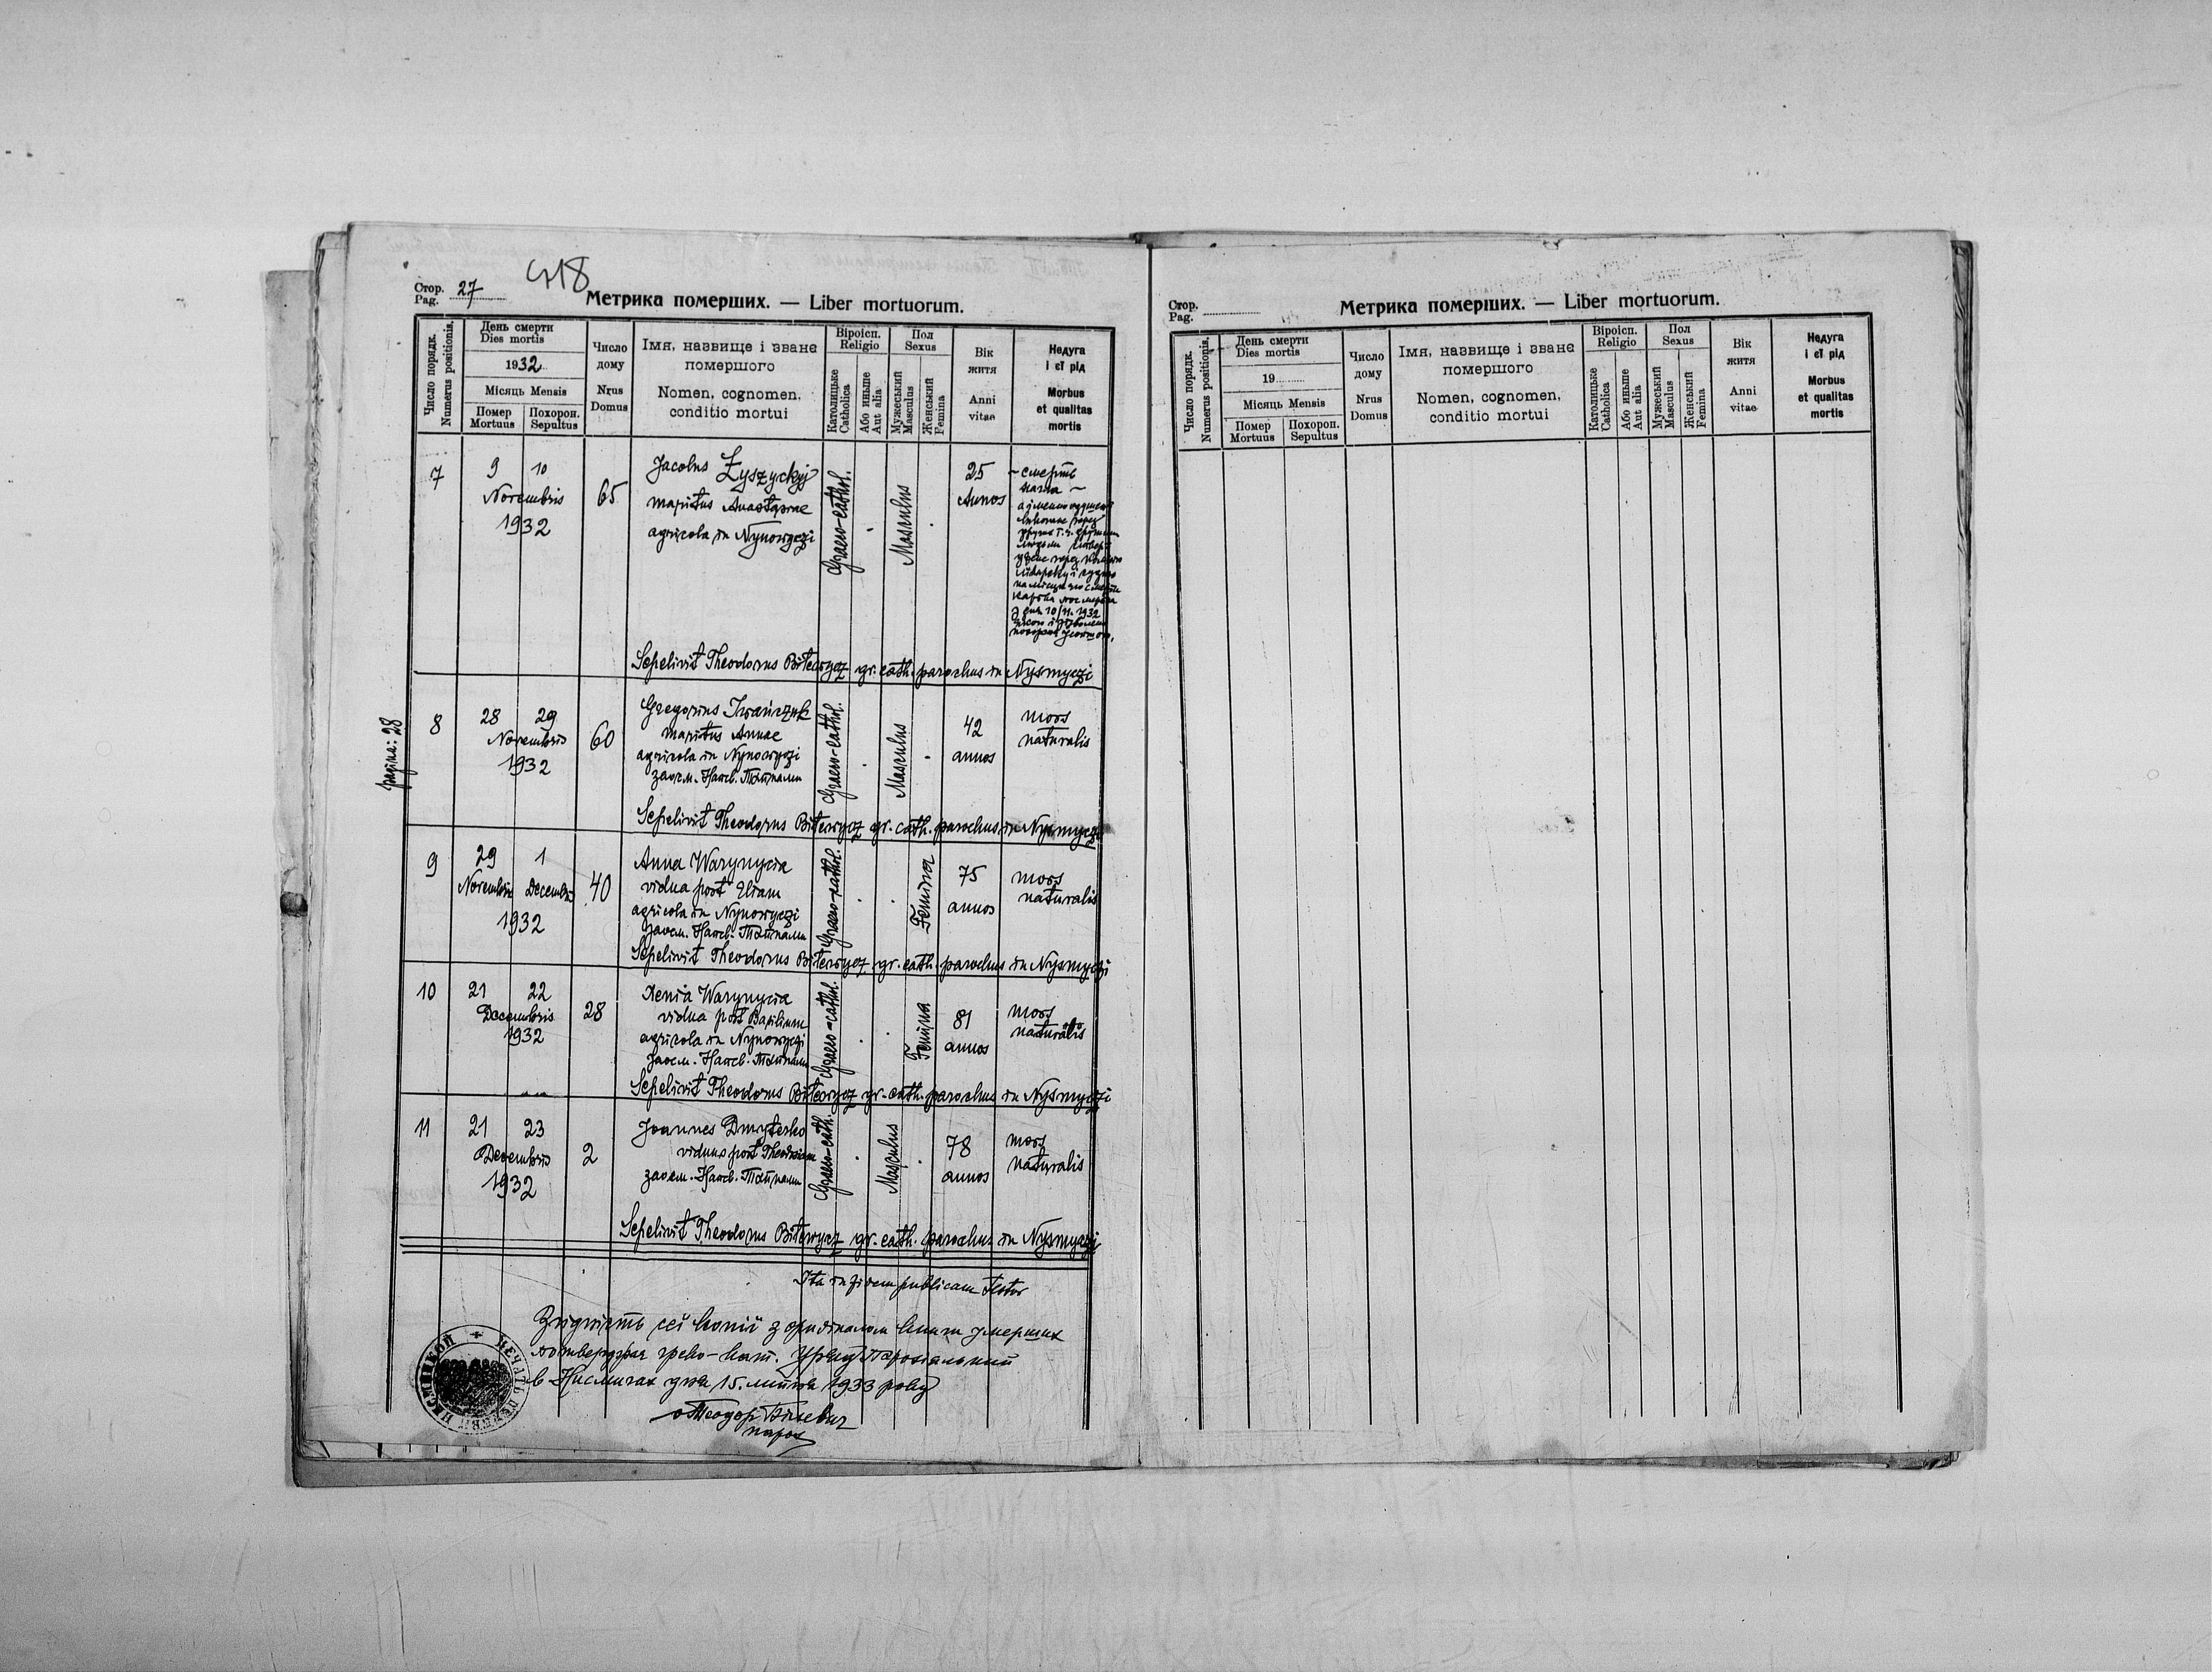 Стор.
Pag. 27
418
Метрика померших. — Liber mortuorum.
Число порядк.
Numerus positionis.
День смерти
Dies mortis
1932
Місяць Mensis
Помер
Mortuus
Похорон.
Sepultus
Число
дому
Nrus
Domus
Імя, назвище і зване
помершого
Nomen, cognomen,
conditio mortui
Віроісп.
Religio
Католицьке
Catholica
Або иньше
Aut alia
Пол
Sexus
Мужеський
Masculus
Женський
Femina
Вік
житя
Anni
vitae
Недуга
і єї рід
Morbus
et qualitas
mortis
7
9 10
Novembris
1932
65
Jacobus Łyszyckyj
maritus Anastasiae
agricola in Nynowyczi
Graeco-cathol.
Masculus
25
Annos
— смерть
нагла —
з дня 10/11. 1932
Sepelivit Theodorus Bilewycz gr. cath. parochus in Nysmyczi
pagina: 28
8
28 29
Novembris
1932
60
Gregorius Iwańczuk
maritus Annae
agricola in Nynowyczi
заосм. Напсв. Тайнами
Graeco-cathol.
Masculus
42
annos
mors
naturalis
Sepelivit Theodorus Bilewycz gr. cath. parochus in Nysmyczi
9
29 1
Novembris Decembris
1932
40
Anna Warynycia
vidua post Eliam
agricola in Nynowyczi
заосм. Напсв. Тайнами
Graeco-cathol.
Femina
75
annos
mors
naturalis
Sepelivit Theodorus Bilewycz gr. cath. parochus in Nysmyczi
10
21 22
Decembris
1932
28
Xenia Warynycia
vidua post Basilium
agricola in Nynowyczi
заосм. Напсв. Тайнами
Graeco-cathol.
Femina
81
annos
mors
naturalis
Sepelivit Theodorus Bilewycz gr. cath. parochus in Nysmyczi
11
21 23
Decembris
1932
2
Joannes Dmyterko
viduus post Theodosiam
заосм. Напсв. Тайнами
Graeco-cath.
Masculus
78
annos
mors
naturalis
Sepelivit Theodorus Bilewycz gr. cath. parochus in Nysmyczi
Ita in fidem publicam testor
Згідність сеї копії з оригіналом книги умерших
потверджає греко-кат. Уряд Парохіяльний
в Нисмичах дня 15. лютня 1933 року
о Теодор Білевич
парох
Стор.
Pag.
Метрика померших. — Liber mortuorum.
Число порядк.
Numerus positionis.
День смерти
Dies mortis
19
Місяць Mensis
Помер
Mortuus
Похорон.
Sepultus
Число
дому
Nrus
Domus
Імя, назвище і зване
помершого
Nomen, cognomen,
conditio mortui
Віроісп.
Religio
Католицьке
Catholica
Або иньше
Aut alia
Пол
Sexus
Мужеський
Masculus
Женський
Femina
Вік
житя
Anni
vitae
Недуга
і єї рід
Morbus
et qualitas
mortis